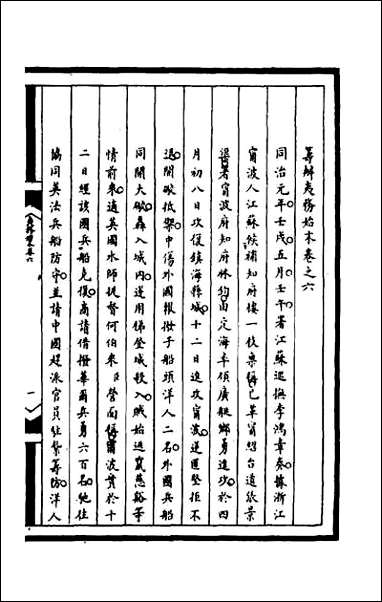 籌辦夷務始末卷之六
同治元年壬戌五月壬午署江蘇巡撫李鴻章奏據浙江
甯波人江蘇候補知府樓一枝稟稱已革甯紹台道張景
渠署甯波府知府林鈞由定海率領廣艇鄉勇進攻於四
月初八日攻復鎮海縣城十二日進攻甯波逆匪堅拒不
退開礮抵禦中傷外國報攻子船頭洋人二名外國兵船
同開大礮轟入城內連用梯登城砍入賊始逃竄慈谿等
情前來適英國水師提督何伯來營面稱甯波貴於十
二日經該國兵船克復商請借撥華爾兵勇六百名馳往
協同英法兵船防守並請中國趕派官員往紮籌防洋人